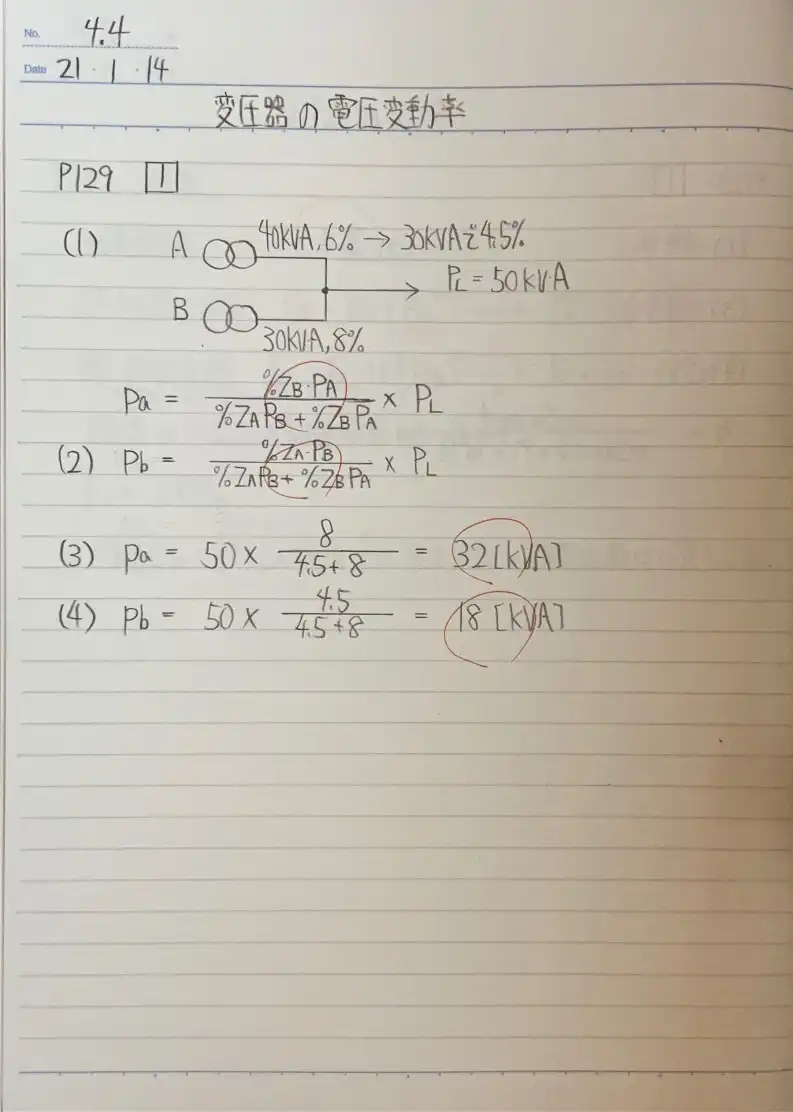 No. 4.4
Date 21・1・14
変圧器の電圧変動率
P129 1
(1) A 40kVA, 6% → 30kVAで4.5%
PL = 50kV・A
B
30kV・A, 8%
Pa = %ZB・PA / %ZAPB + %ZBPA × PL
(2) Pb = %ZA・PB / %ZAPB + %ZBPA × PL
(3) Pa = 50 × 8 / 4.5 + 8 = 32 [kVA]
(4) Pb = 50 × 4.5 / 4.5 + 8 = 18 [kVA]